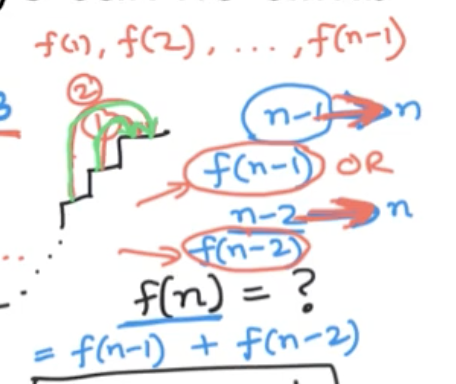 f(1), f(2), ...., f(n-1)
3
2
1
n-1 → n
f(n-1) OR
n-2 → n
f(n-2)
f(n) = ?
= f(n-1) + f(n-2)